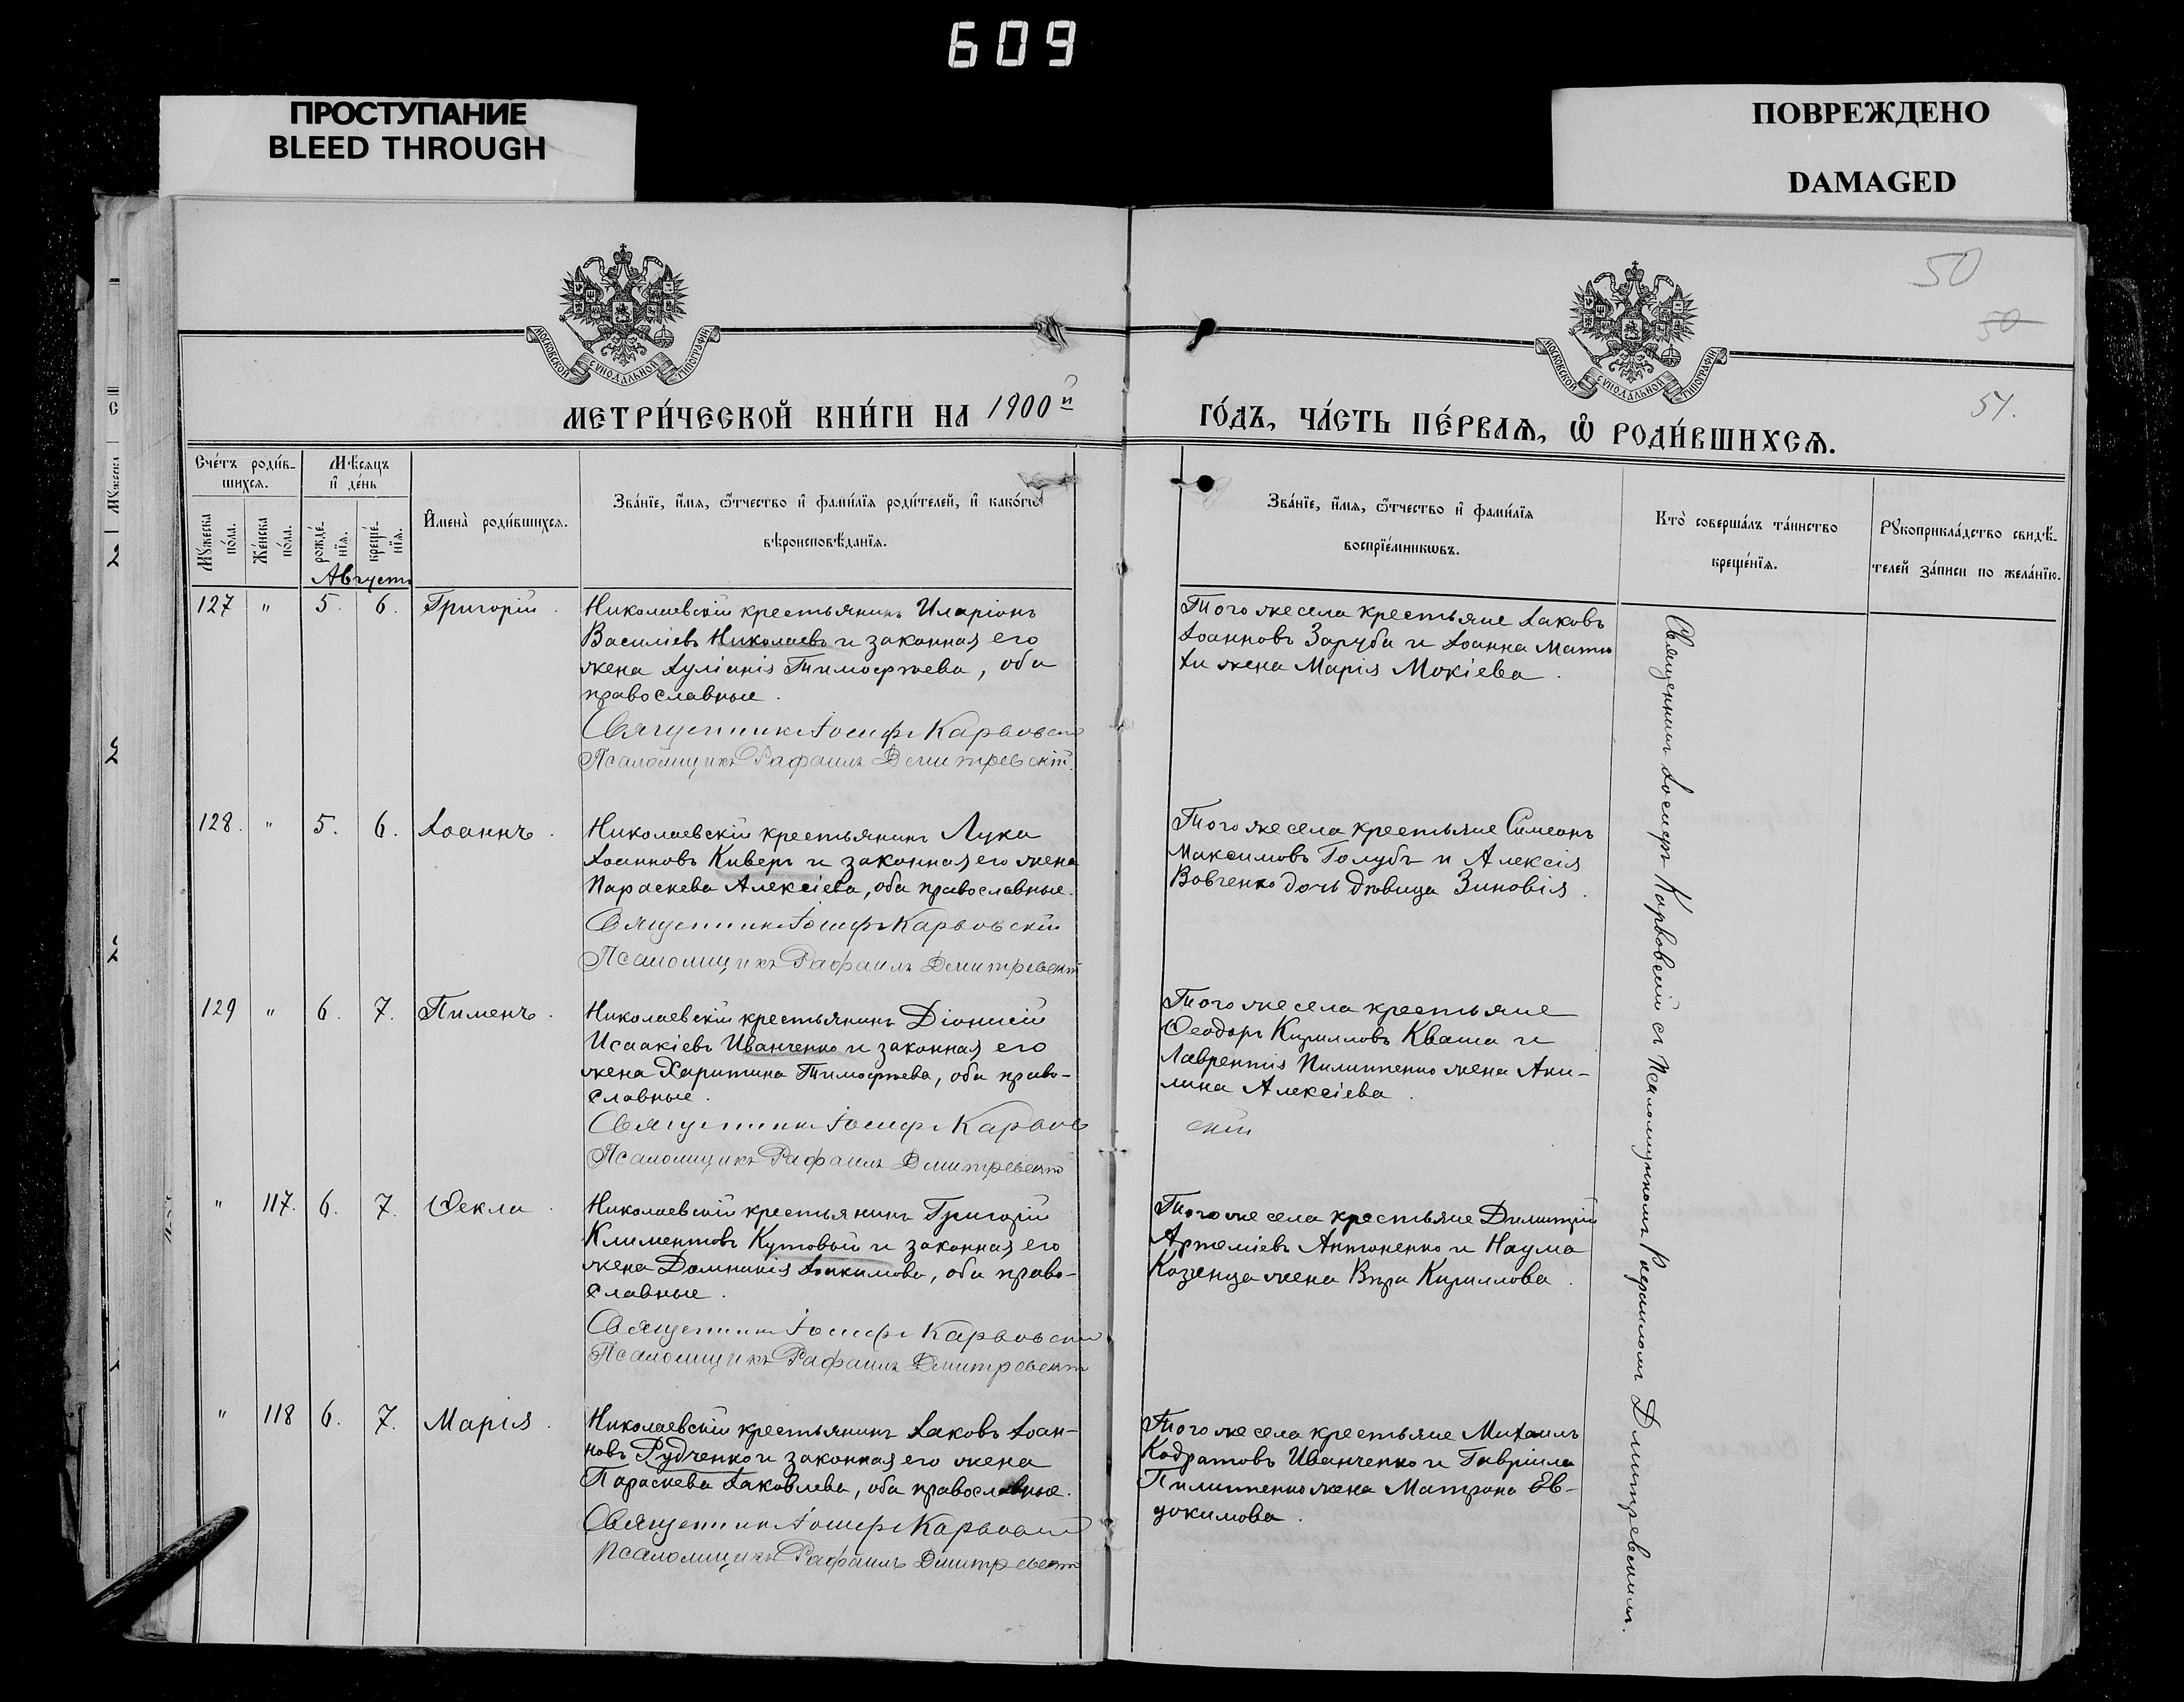 609
ПРОСТУПАНИЕ
BLEED THROUGH
ПОВРЕЖДЕНО
DAMAGED
50
50
51.
МОСКОВСКОЙ СѴНОДАЛЬНОЙ ТИПОГРАФІИ
МОСКОВСКОЙ СѴНОДАЛЬНОЙ ТИПОГРАФІИ
МЕТРИ́ЧЕСКОЙ КНИ́ГИ НА 1900й
ГО́ДЪ, ЧА́СТЬ ПЕ́РВАѦ, Ѽ РОДИ́ВШИХСѦ.
Сче́тъ роди́в-
шихсѧ.
Мѣ́сяцъ
и҆ де́нь
Мꙋ́жеска
по́ла.
Же́нска
по́ла.
рожде́-
нїѧ.
креще́-
нїѧ.
И҆мена̀ роди́вшихсѧ.
Зва́нїе, и҆́мѧ, ѻ҆́тчество и҆ фами́лїѧ роди́телей, и҆ како́гѡ
вѣроисповѣ́данїѧ.
Зва́нїе, и҆́мѧ, ѻ҆́тчество и҆ фами́лїѧ
воспрїе́мникѡвъ.
Кто̀ соверша́лъ та́инство
креще́нїѧ.
Рꙋкоприкла́дство свидѣ́-
телей за́писи по жела́нїю.
Августъ
127 " 5. 6. Григорій.
Николаевскій крестьянинъ Иларіонъ
Василіевъ Николаевъ и законная его
жена Іуліанія Тимофѣева, оба
православные.
Священникъ Іосифъ Карвовскій
Псаломщикъ Рафаилъ Дмитревскій.
Того же села крестьяне Іаковъ
Іоанновъ Заруба и Іоанна
жена Марія Мокіева.
128. " 5. 6. Іоаннъ.
Николаевскій крестьянинъ Лука
Іоанновъ Киверъ и законная его жена
Параскева Алексіева, оба православные.
Священникъ Іосифъ Карвовскій
Псаломщикъ Рафаилъ Дмитревскій
Того же села крестьяне Симеонъ
Максимовъ Голубъ и Алексія
Вовченко дочь дѣвица Зиновія.
129 " 6. 7. Пименъ.
Николаевскій крестьянинъ Діонисій
Исаакіевъ Иванченко и законная его
жена Харитина Тимофѣева, оба право-
славные.
Священникъ Іосифъ Карвов
Псаломщикъ Рафаилъ Дмитревскій
Того же села крестьяне
Ѳеодоръ Кирилловъ Кваша и
Лаврентія Пилипенко жена Аки-
лина Алексіева.
скій
" 117. 6. 7. Ѳекла.
Николаевскій крестьянинъ Григорій
Климентовъ Кутовый и законная его
жена Домникія Іоакимова, оба право-
славные.
Священникъ Іосифъ Карвовскій
Псаломщикъ Рафаилъ Дмитревскій
Того же села крестьяне Димитрій
Артеміевъ Антоненко и Наума
Козенца жена Вѣра Кириллова.
" 118 6. 7. Марія.
Николаевскій крестьянинъ Іаковъ Іоан-
новъ Рудченко и законная его жена
Параскева Іаковлева, оба православные.
Священникъ Іосифъ Карвовскій
Псаломщикъ Рафаилъ Дмитревскій
Того же села крестьяне Михаилъ
Кодратовъ Иванченко и Гавріила
Пилипенко жена Матрона Ев-
докимова.
Священникъ Іосифъ Карвовскій съ Псаломщикомъ Рафаиломъ Дмитревскимъ.